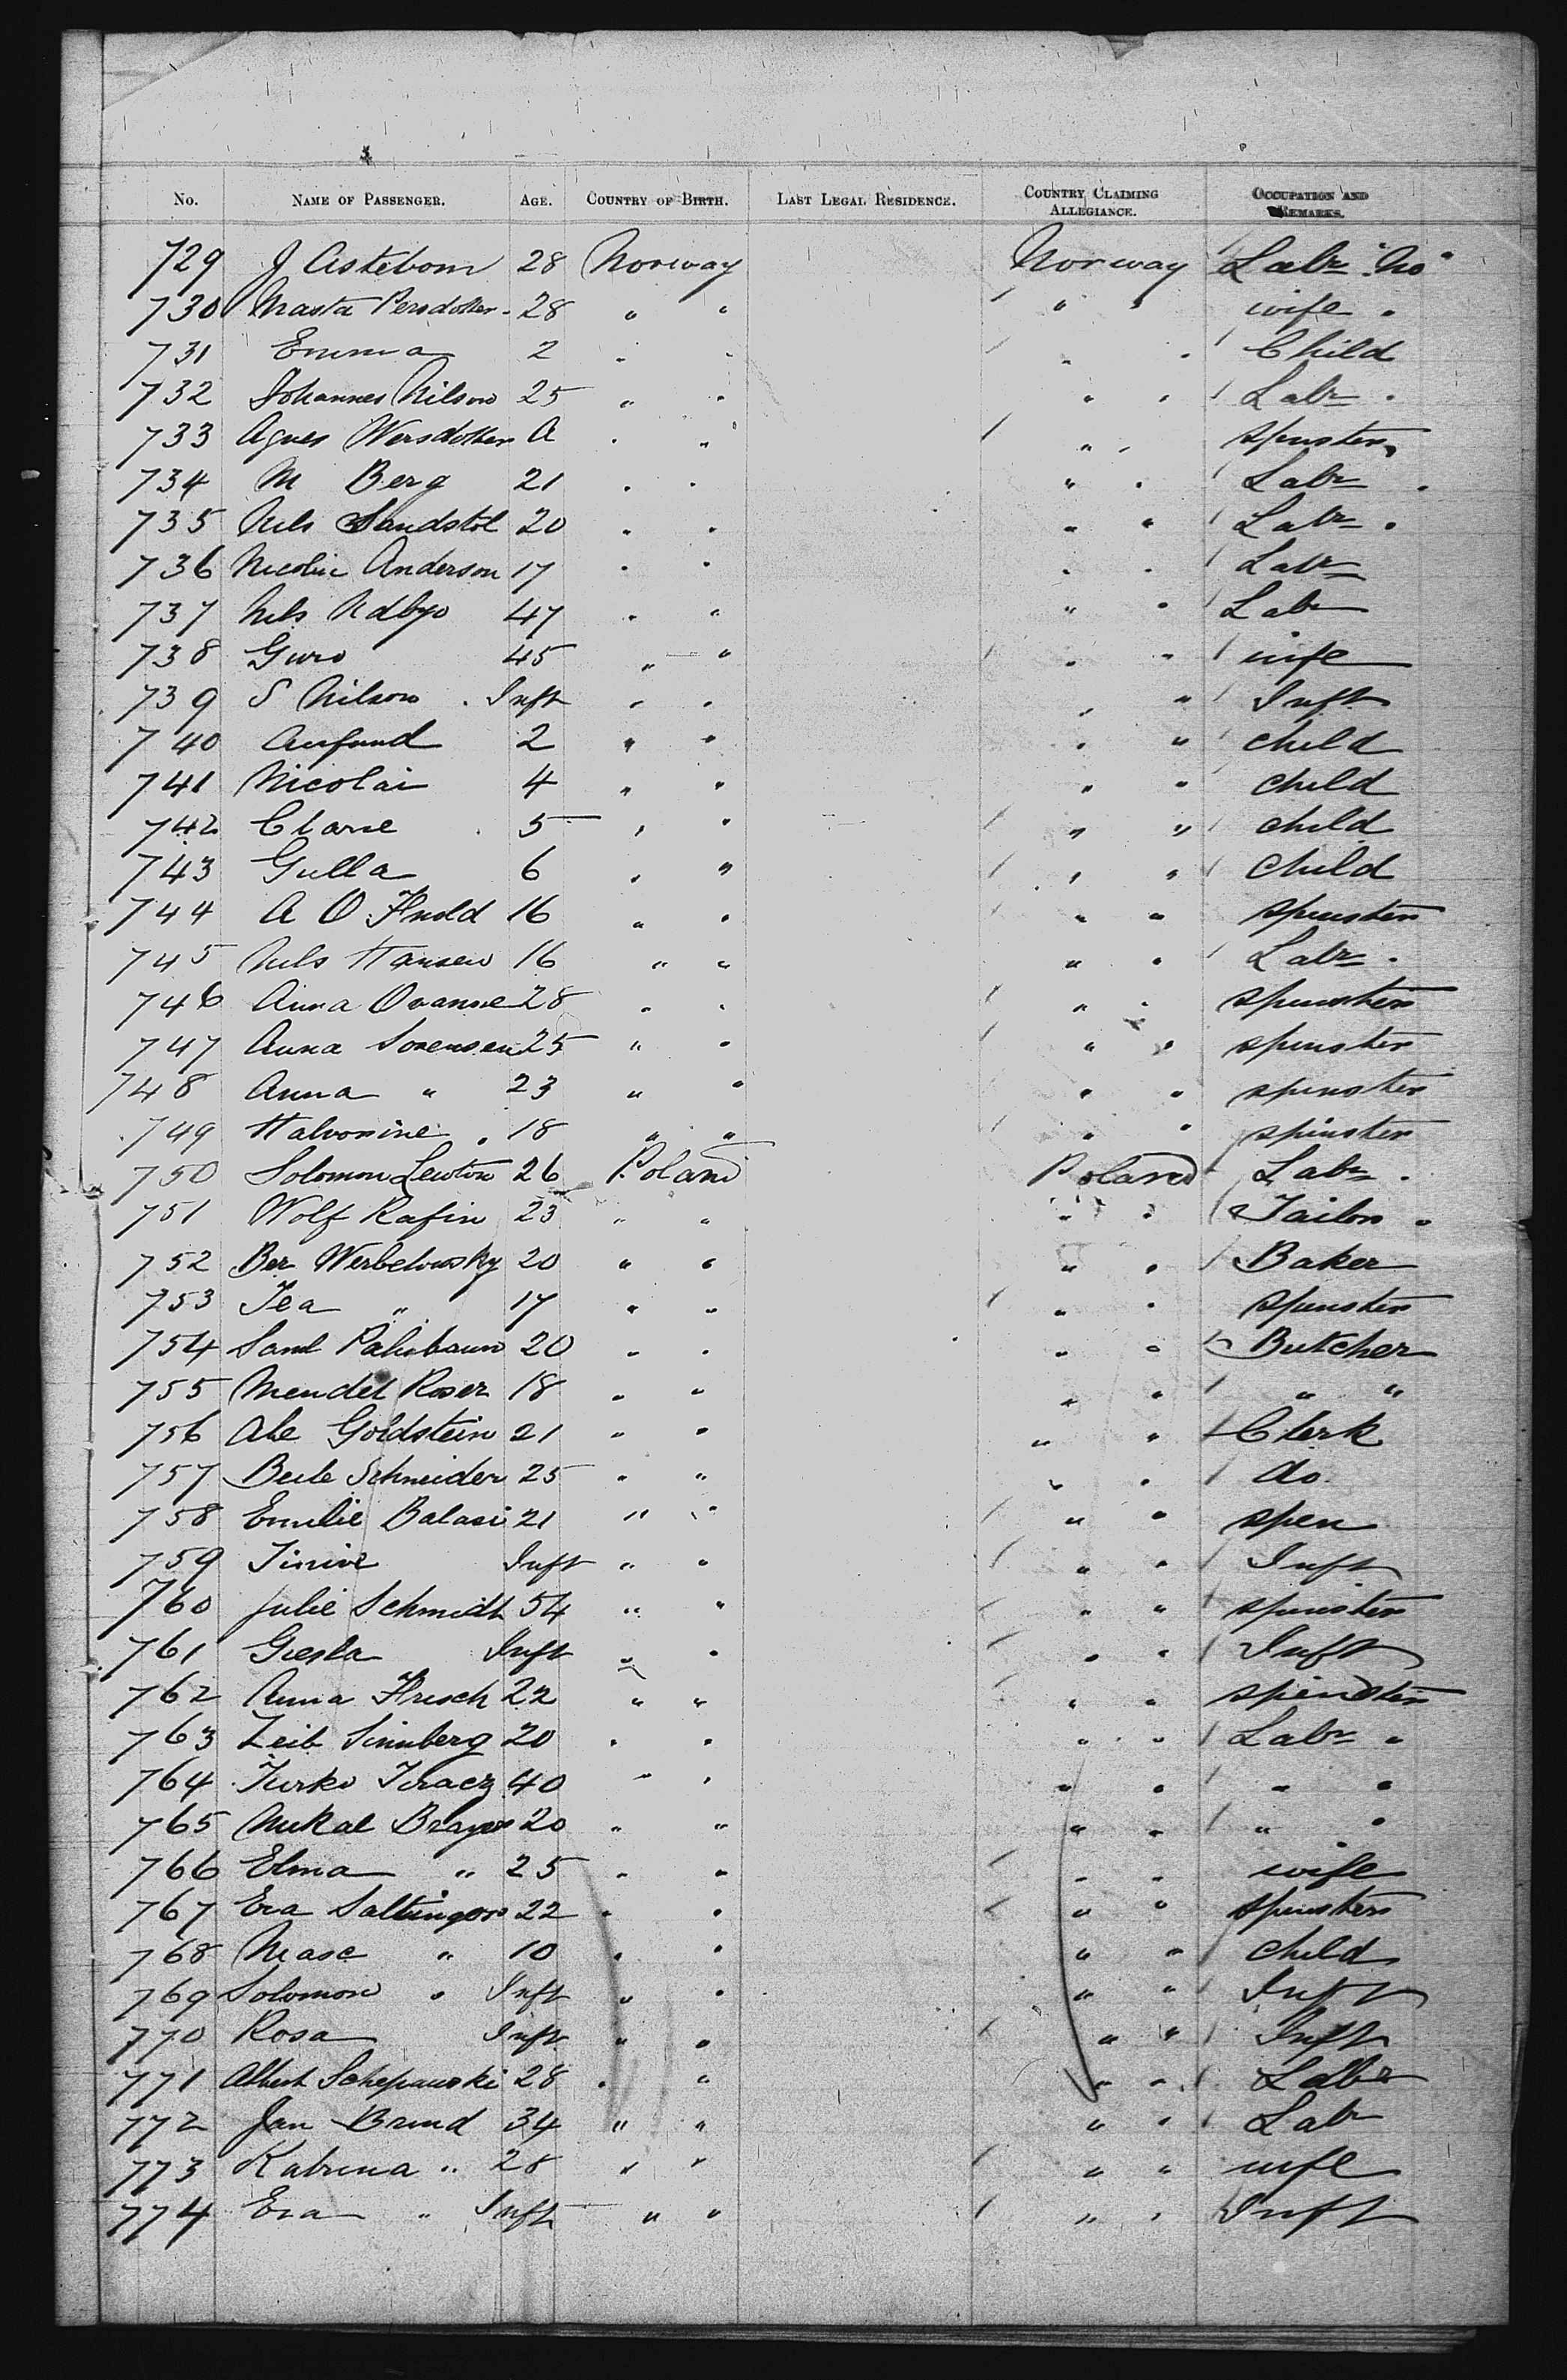 No. NAME OF PASSENGER. AGE. COUNTRY OF BIRTH. LAST LEGAL RESIDENCE. COUNTRY CLAIMING ALLEGIANCE. OCCUPATION AND REMARKS.
729 J Astebom 28 Norway Norway Labr "No"
730 Masta Persdotter 28 " " " " wife "
731 Emma 2 " " " " Child
732 Johannes Nilson 25 " " " " Labr "
733 Agnes Wersdotter A " " " " spinster
734 M Berg 21 " " " " Labr "
735 Nils Sandstol 20 " " " " Labr "
736 Nicolie Anderson 17 " " " " Labr
737 Nils Udbyo 47 " " " " Labr
738 Guro 45 " " " " wife
739 S Nilson Inft " " " " Inft
740 Aufund 2 " " " " child
741 Nicolai 4 " " " " child
742 Clarie 5 " " " " child
743 Gulla 6 " " " " Child
744 A O 16 " " " " spinster
745 Nils Hansen 16 " " " " Labr "
746 Anna Ovanne 28 " " " " spinster
747 Anna Sorensen 25 " " " " spinster
748 Anna " 23 " " " " spinster
749 Halvorine " 18 " " " " spinster
750 Solomon Lewton 26 Poland Poland Labr "
751 Wolf Rafin 23 " " " " Tailor "
752 Ber Werbelowsky 20 " " " " Baker
753 Tea " 17 " " " " spinster
754 Saml 20 " " " " Butcher
755 Mendel Roser 18 " " " " " "
756 Abe Goldstein 21 " " " " Clerk
757 Beile Schneider 25 " " " " do
758 Emilie Balasi 21 " " " " spin
759 Inft " " " " Inft
760 Julie Schmidt 54 " " " " spinster
761 Giesla Inft " " " " Inft
762 Anna Frisch 22 " " " " spinster
763 Leib Sinnberg 20 " " " " Labr "
764 Jurko 40 " " " " " "
765 20 " " " " " "
766 Elma " 25 " " " " wife
767 Eva 22 " " " " spinster
768 Mase " 10 " " " " child
769 Solomon " Inft " " " " Inft
770 Rosa Inft " " " " Inft
771 Albert Schepanski 28 " " " " Labr
772 Jan Brund 34 " " " " Labr
773 Katrina " 28 " " " " wife
774 Eva " Inft " " " " Inft